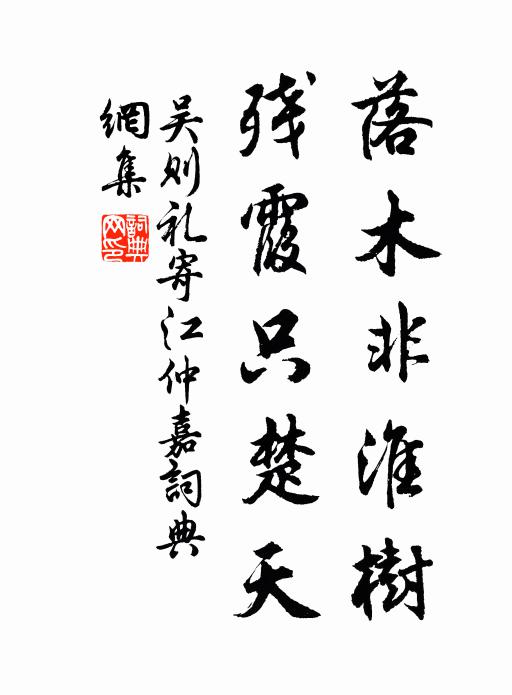 落木非淮樹
残霞只楚天
吴则礼寄江仲嘉詞典
網集
詞典網印